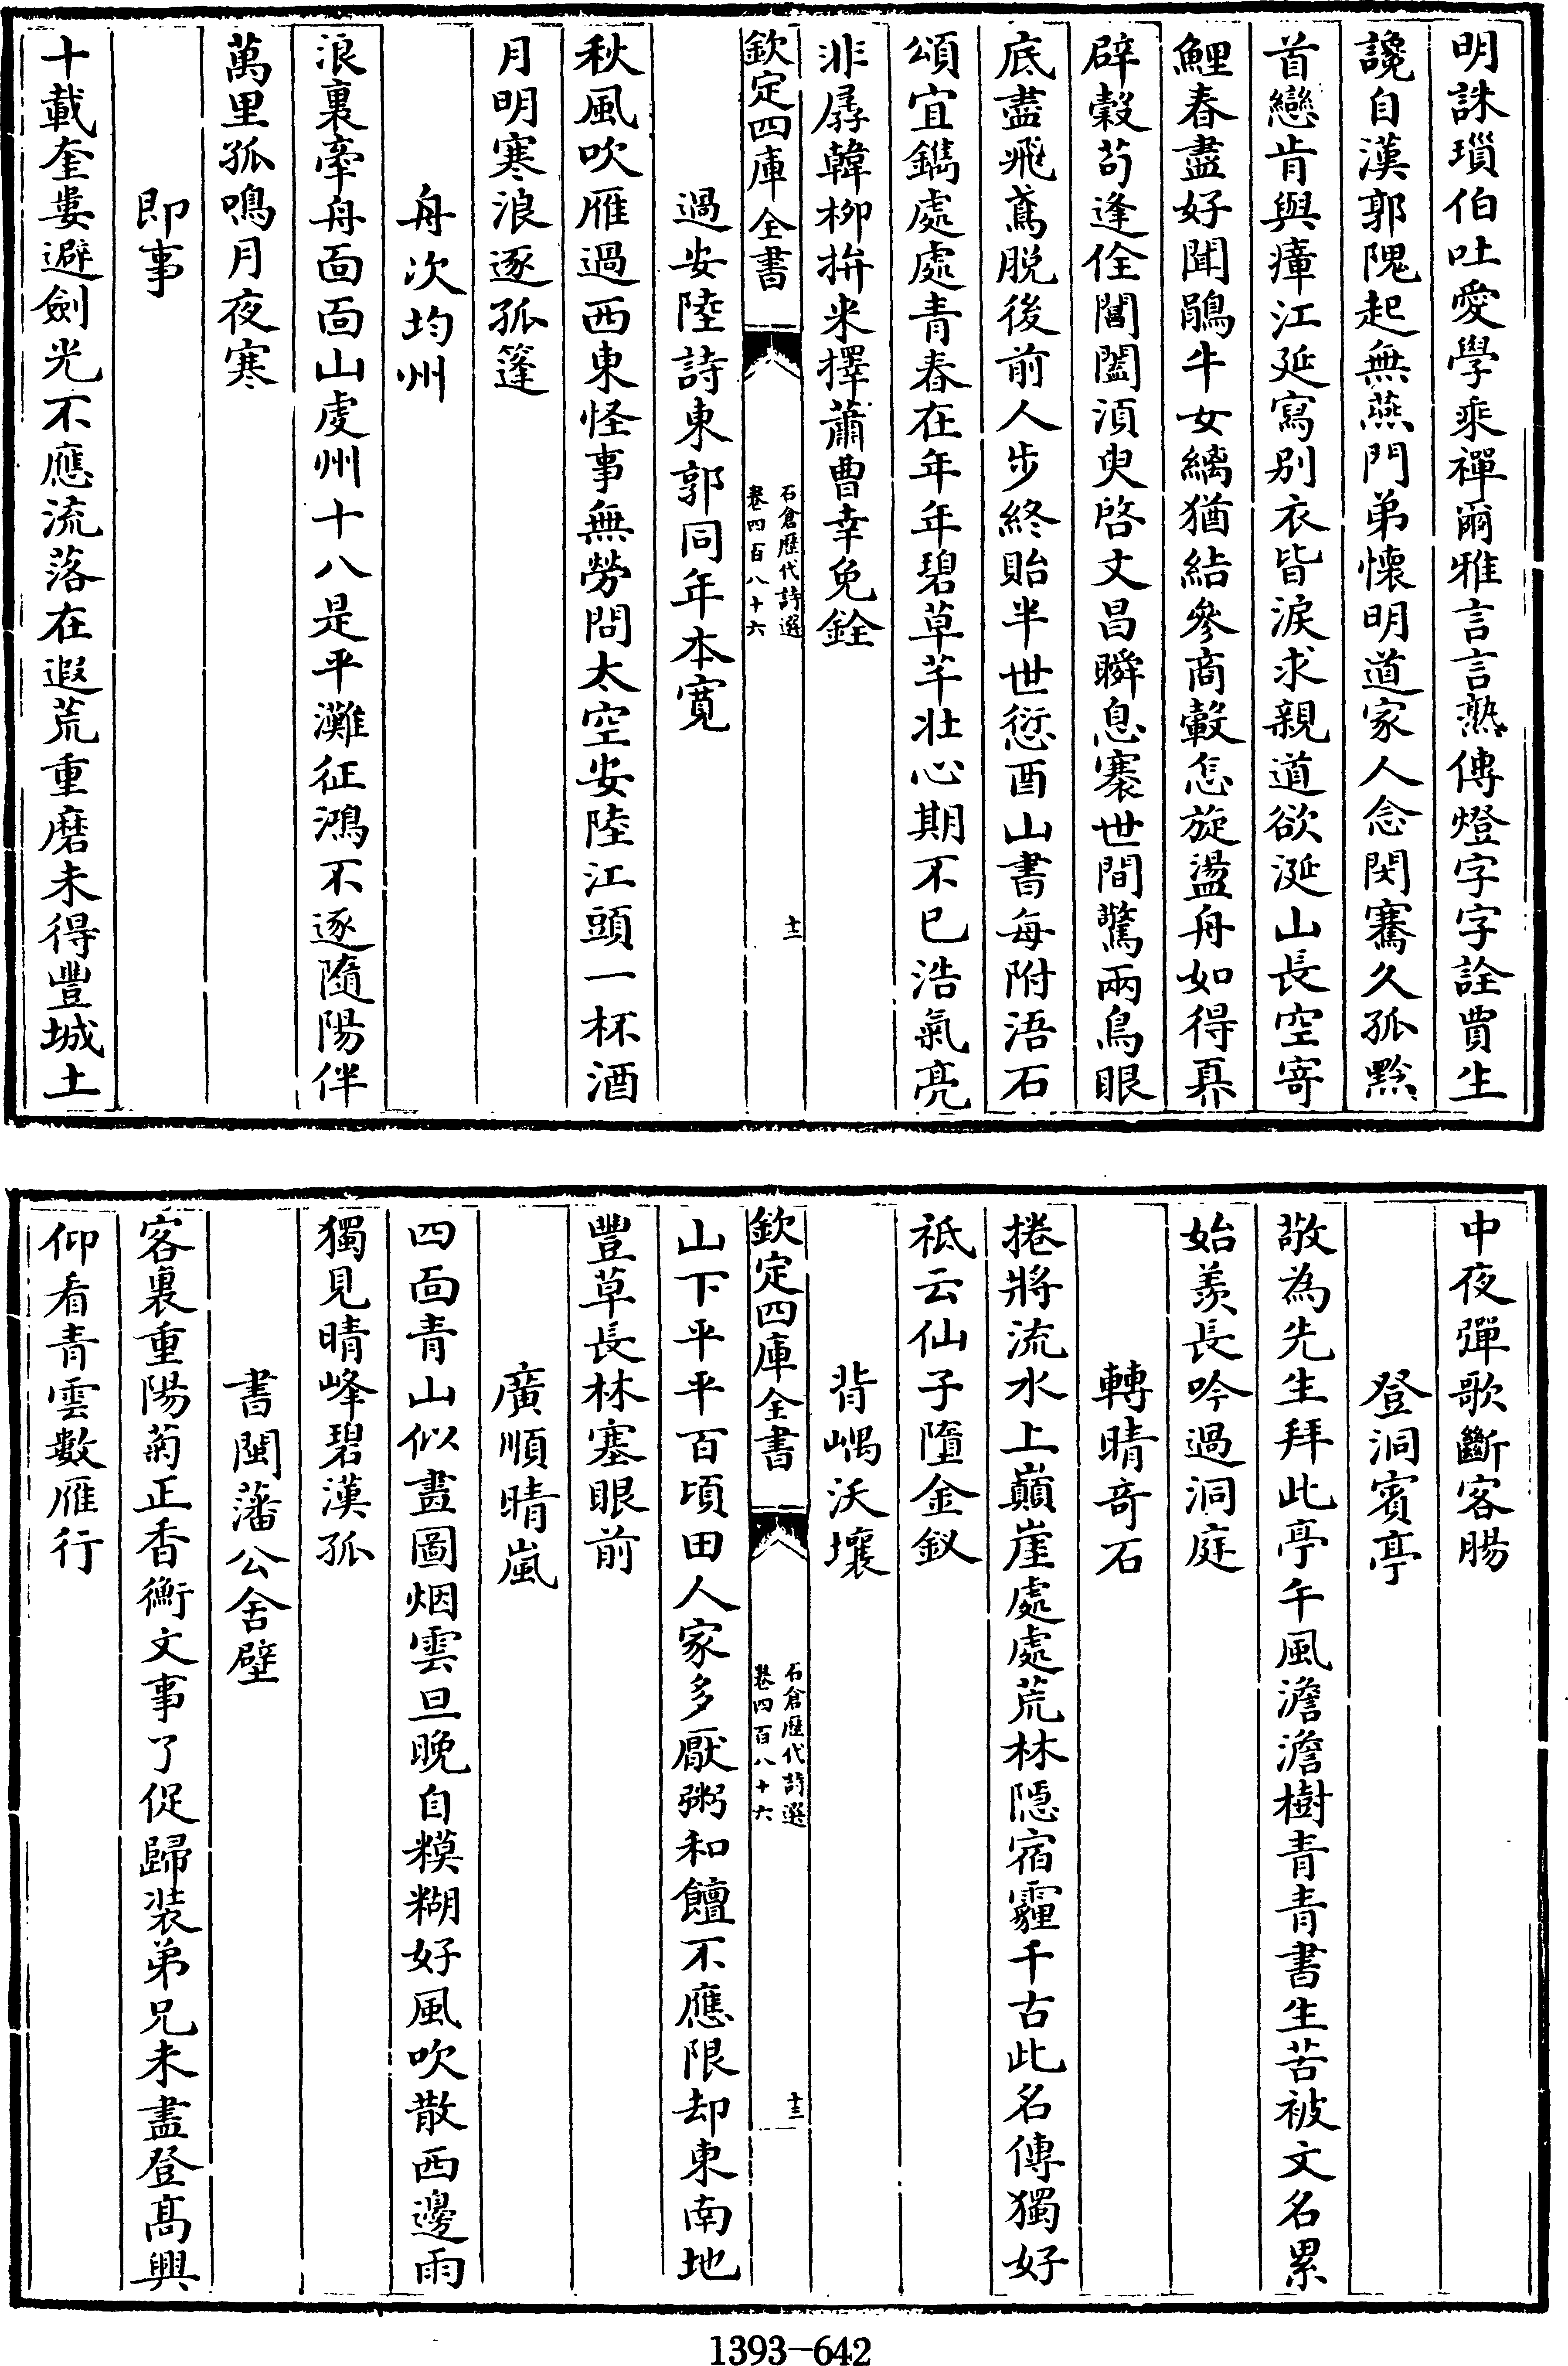 明誅瑣伯吐愛學乘禪爾雅言言熟傳燈字字詮賈生
讒自漢郭隗起無燕門弟懷明道家人念閔騫久孤黙
首戀肯與瘴江延寫别衣皆淚求親道欲涎山長空寄
鯉春盡好聞鵑牛女縭猶結參商轂怎旋盪舟如得奡
辟穀茍逢佺閶闔湏臾啓文昌瞬息褰世間驚兩鳥眼
底盡飛鳶脫後前人歩終貽半世愆酉山書每附浯石
頌宜鐫處處青春在年年碧草芊壯心期不已浩氣亮
非孱韓柳拚米擇蕭曹幸免銓
欽定四庫全書
石倉歷代詩選
卷四百八十六
十二
過安陸詩東郭同年本寛
秋風吹雁過西東怪事無勞問太空安陸江頭一杯酒
月明寒浪逐孤篷
舟次均州
浪裏牽舟面面山虔州十八是平灘征鴻不逐隨陽伴
萬里孤鳴月夜寒
即事
十載奎婁避劍光不應流落在遐荒重磨未得豐城土
中夜彈歌斷客腸
登洞賓亭
敬為先生拜此亭午風澹澹樹青青書生苦被文名累
始羨長吟過洞庭
轉晴竒石
捲將流水上巔崖處處荒林隠宿霾千古此名傳獨好
祗云仙子墮金釵
背嵎沃壤
欽定四庫全書
石倉歷代詩選
卷四百八十六
十三
山下平平百頃田人家多厭粥和饘不應限却東南地
豐草長林塞眼前
廣順晴嵐
四面青山似畫圖烟雲旦晚自糢糊好風吹散西邊雨
獨見晴峰碧漢孤
書閩藩公舍壁
客裏重陽菊正香衡文事了促歸装弟兄未盡登髙興
仰看青雲數雁行
1393-642